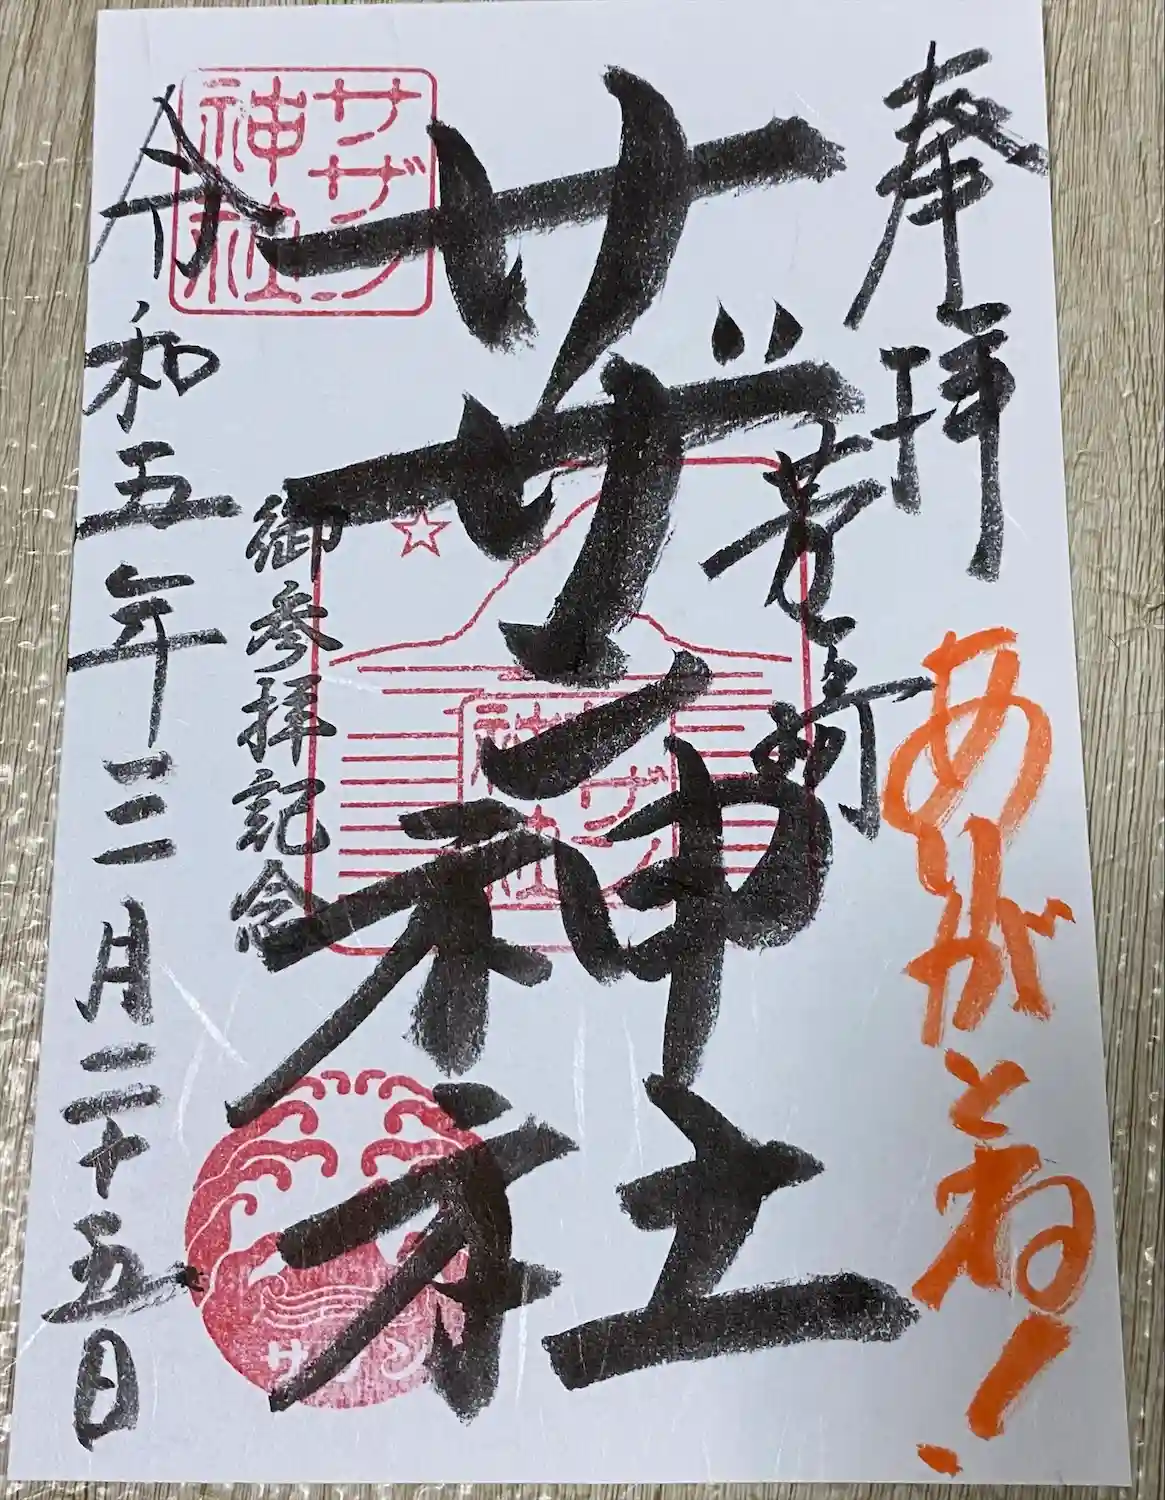 奉拝
ありがとね!
茅ヶ崎
サザン神社
御参拝記念
令和五年三月二十五日
サザン
神社
サザン
神社
サザン